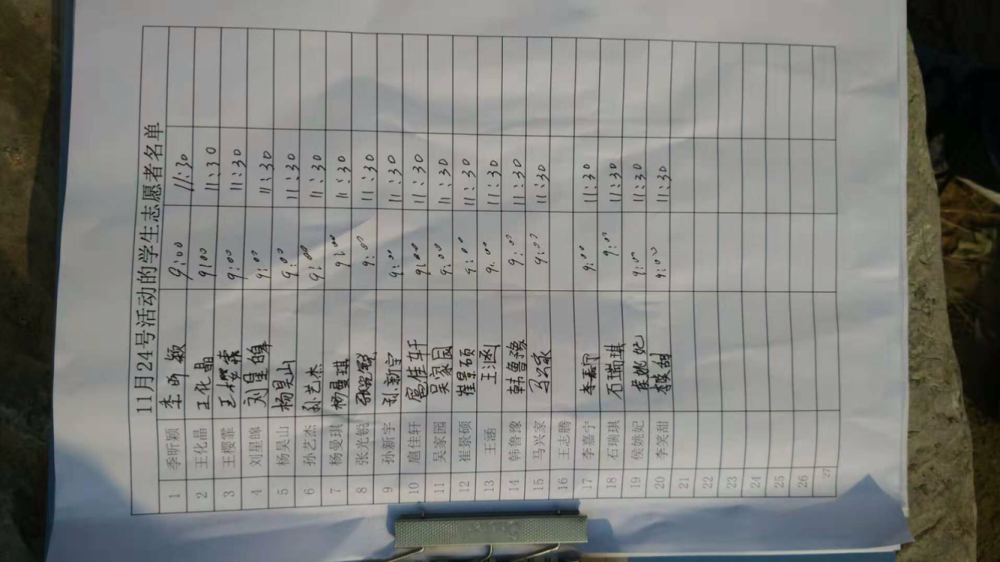 11月24号活动的学生志愿者名单
1 季昕颖 9:00 11:30
2 王化晶 王化晶 9:00 11:30
3 王樱霏 王樱霏 9:00 11:30
4 刘星皞 刘星皞 9:00 11:30
5 杨昊山 杨昊山 9:00 11:30
6 孙艺杰 孙艺杰 9:00 11:30
7 杨曼琪 杨曼琪 9:00 11:30
8 张光锐 9:00 11:30
9 孙新宇 孙新宇 9:00 11:30
10 扈佳轩 扈佳轩 9:00 11:30
11 吴家园 吴家园 9:00 11:30
12 崔景硕 崔景硕 9:00 11:30
13 王涵 王涵 9:00 11:30
14 韩鲁豫 韩鲁豫 9:00 11:30
15 马兴家 马兴家 9:00 11:30
16 王志腾
17 李嘉宁 9:00 11:30
18 石瑞琪 石瑞琪 9:00 11:30
19 侯姚妃 侯姚妃 9:00 11:30
20 李笑甜 9:00 11:30
21
22
23
24
25
26
27